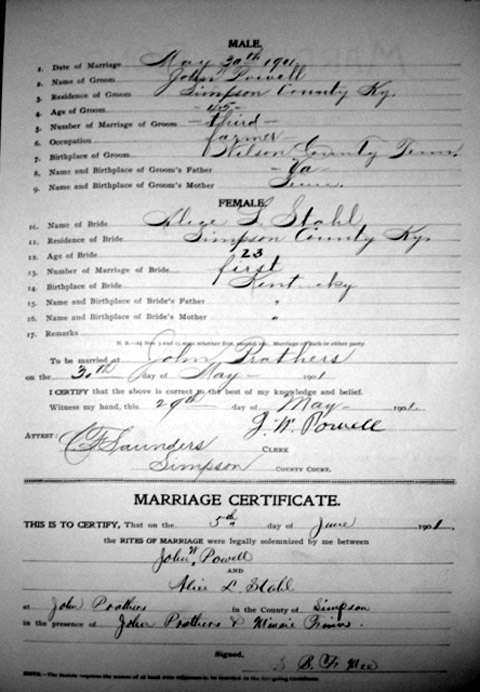 MALE.
1. Date of Marriage May 30th 1901
2. Name of Groom John Powell
3. Residence of Groom Simpson County Ky.
4. Age of Groom - 45 -
5. Number of Marriage of Groom - third -
6. Occupation farmer
7. Birthplace of Groom Wilson County Tenn.
8. Name and Birthplace of Groom's Father - Va -
9. Name and Birthplace of Groom's Mother Tenn.
FEMALE.
10. Name of Bride Alice L Stahl
11. Residence of Bride Simpson County Ky.
12. Age of Bride 23
13. Number of Marriage of Bride first
14. Birthplace of Bride Kentucky
15. Name and Birthplace of Bride's Father "
16. Name and Birthplace of Bride's Mother "
17. Remarks
N. B.—At Nos. 5 and 13 state whether first, second, etc., Marriage of each or either party.
To be married at John Prathers
on the 30th day of May - 1901
I CERTIFY that the above is correct to the best of my knowledge and belief.
Witness my hand, this 29th day of May - 1901.
J. W. Powell
ATTEST: C F Saunders CLERK
Simpson COUNTY COURT.
MARRIAGE CERTIFICATE.
THIS IS TO CERTIFY, That on the 5th day of June 1901.
the RITES OF MARRIAGE were legally solemnized by me between
John W. Powell
AND
Alice L Stahl
at John Prathers in the County of Simpson
in the presence of John Prathers & Minnie
Signed,
B. F.
NOTE.—The Statute requires the names of at least two witnesses to be inserted in the foregoing Certificate.